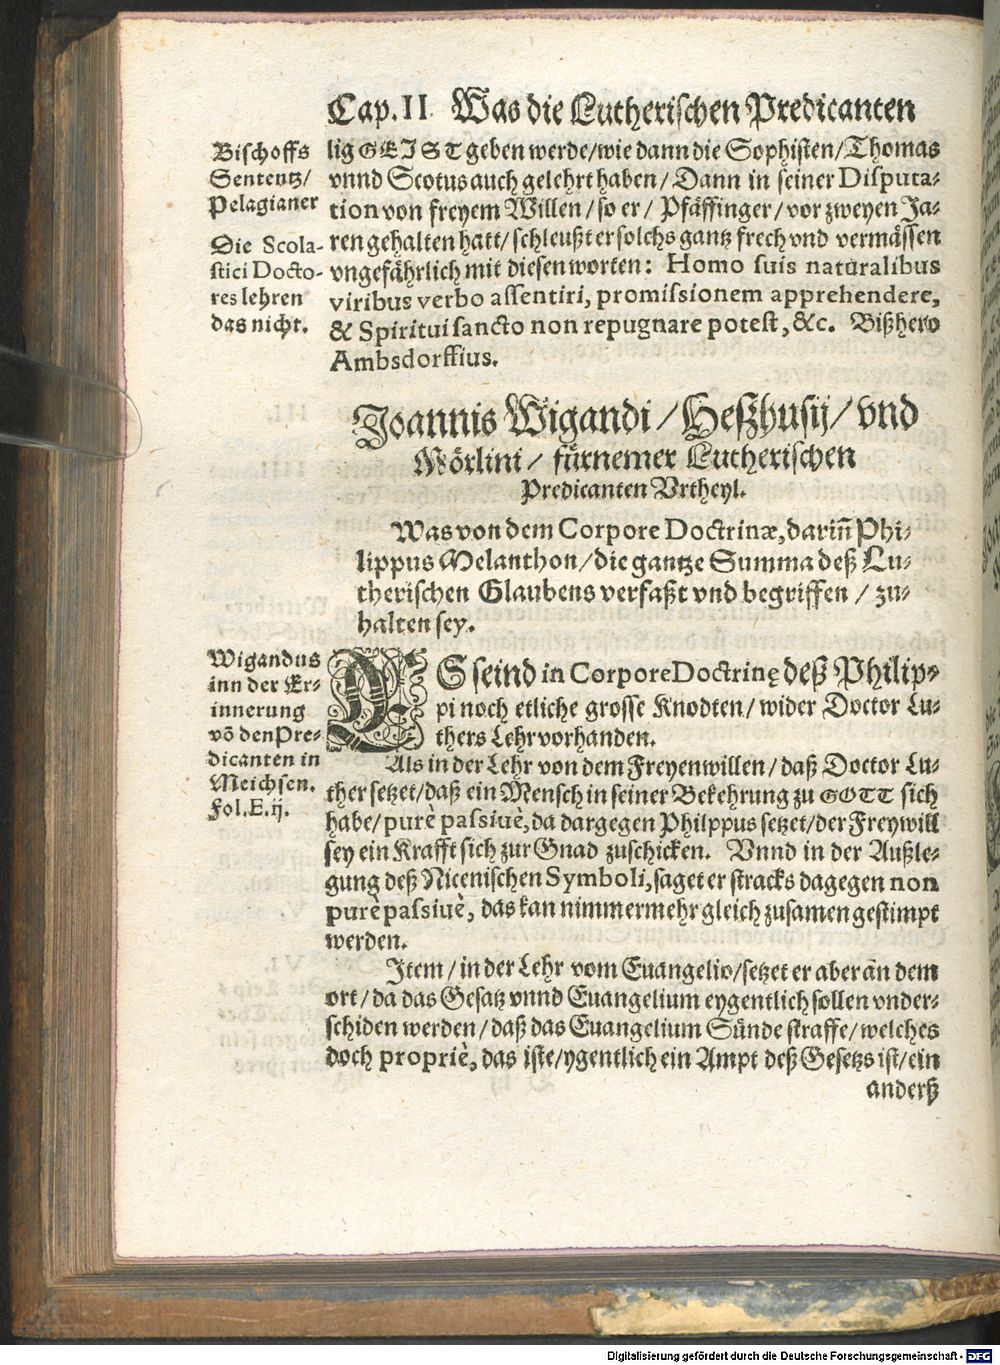 Cap. II. Was die Lutherischen Predicanten
Bischoffs
Sententz/
Pelagianer
Die Scola-
stici Docto-
res lehren
das nicht.
lig GEIST geben werde/wie dann die Sophisten/Thomas
vnnd Scotus auch gelehrt haben/ Dann in seiner Disputa-
tion von freyem Willen/so er/ Pfäffinger/vor zweyen Ja-
ren gehalten hatt/schleußt er solchs gantz frech vnd vermässen
vngefährlich mit diesen worten: Homo suis naturalibus
viribus verbo assentiri, promissionem apprehendere,
& Spiritui sancto non repugnare potest, &c. Bißhero
Ambsdorffius.
Joannis Wigandi/Heßhusij/vnd
Mörlini/ fürnemer Lutherischen
Predicanten Vrtheyl.
Was von dem Corpore Doctrinæ, dariñ Phi-
lippus Melanthon/die gantze Summa deß Lu-
therischen Glaubens verfaßt vnd begriffen/zu-
halten sey.
Wigandus
inn der Er-
innerung
võ den Pre-
dicanten in
Meichsen.
fol. E. ij.
ES seind in Corpore Doctrinę deß Philip-
pi noch etliche grosse Knodten/wider Doctor Lu-
thers Lehr vorhanden.
Als in der Lehr von dem Freyenwillen/daß Doctor Lu-
ther setzet/daß ein Mensch in seiner Bekehrung zu GOTT sich
habe/purè passiuè, da dargegen Philppus setzet/der Freywill
sey ein Krafft sich zur Gnad zuschicken. Vnnd in der Außle-
gung deß Nicenischen Symboli, saget er stracks dagegen non
purè passiuè, das kan nimmermehr gleich zusamen gestimpt
werden.
Item/in der Lehr vom Euangelio/setzet er aber an dem
ort/da das Gesatz vnnd Euangelium eygentlich sollen vnder-
schiden werden/daß das Euangelium Sünde straffe/welches
doch propriè, das iste/ygentlich ein Ampt deß Gesetzs ist/ein
anderß
Digitalisierung gefördert durch die Deutsche Forschungsgemeinschaft - DFG